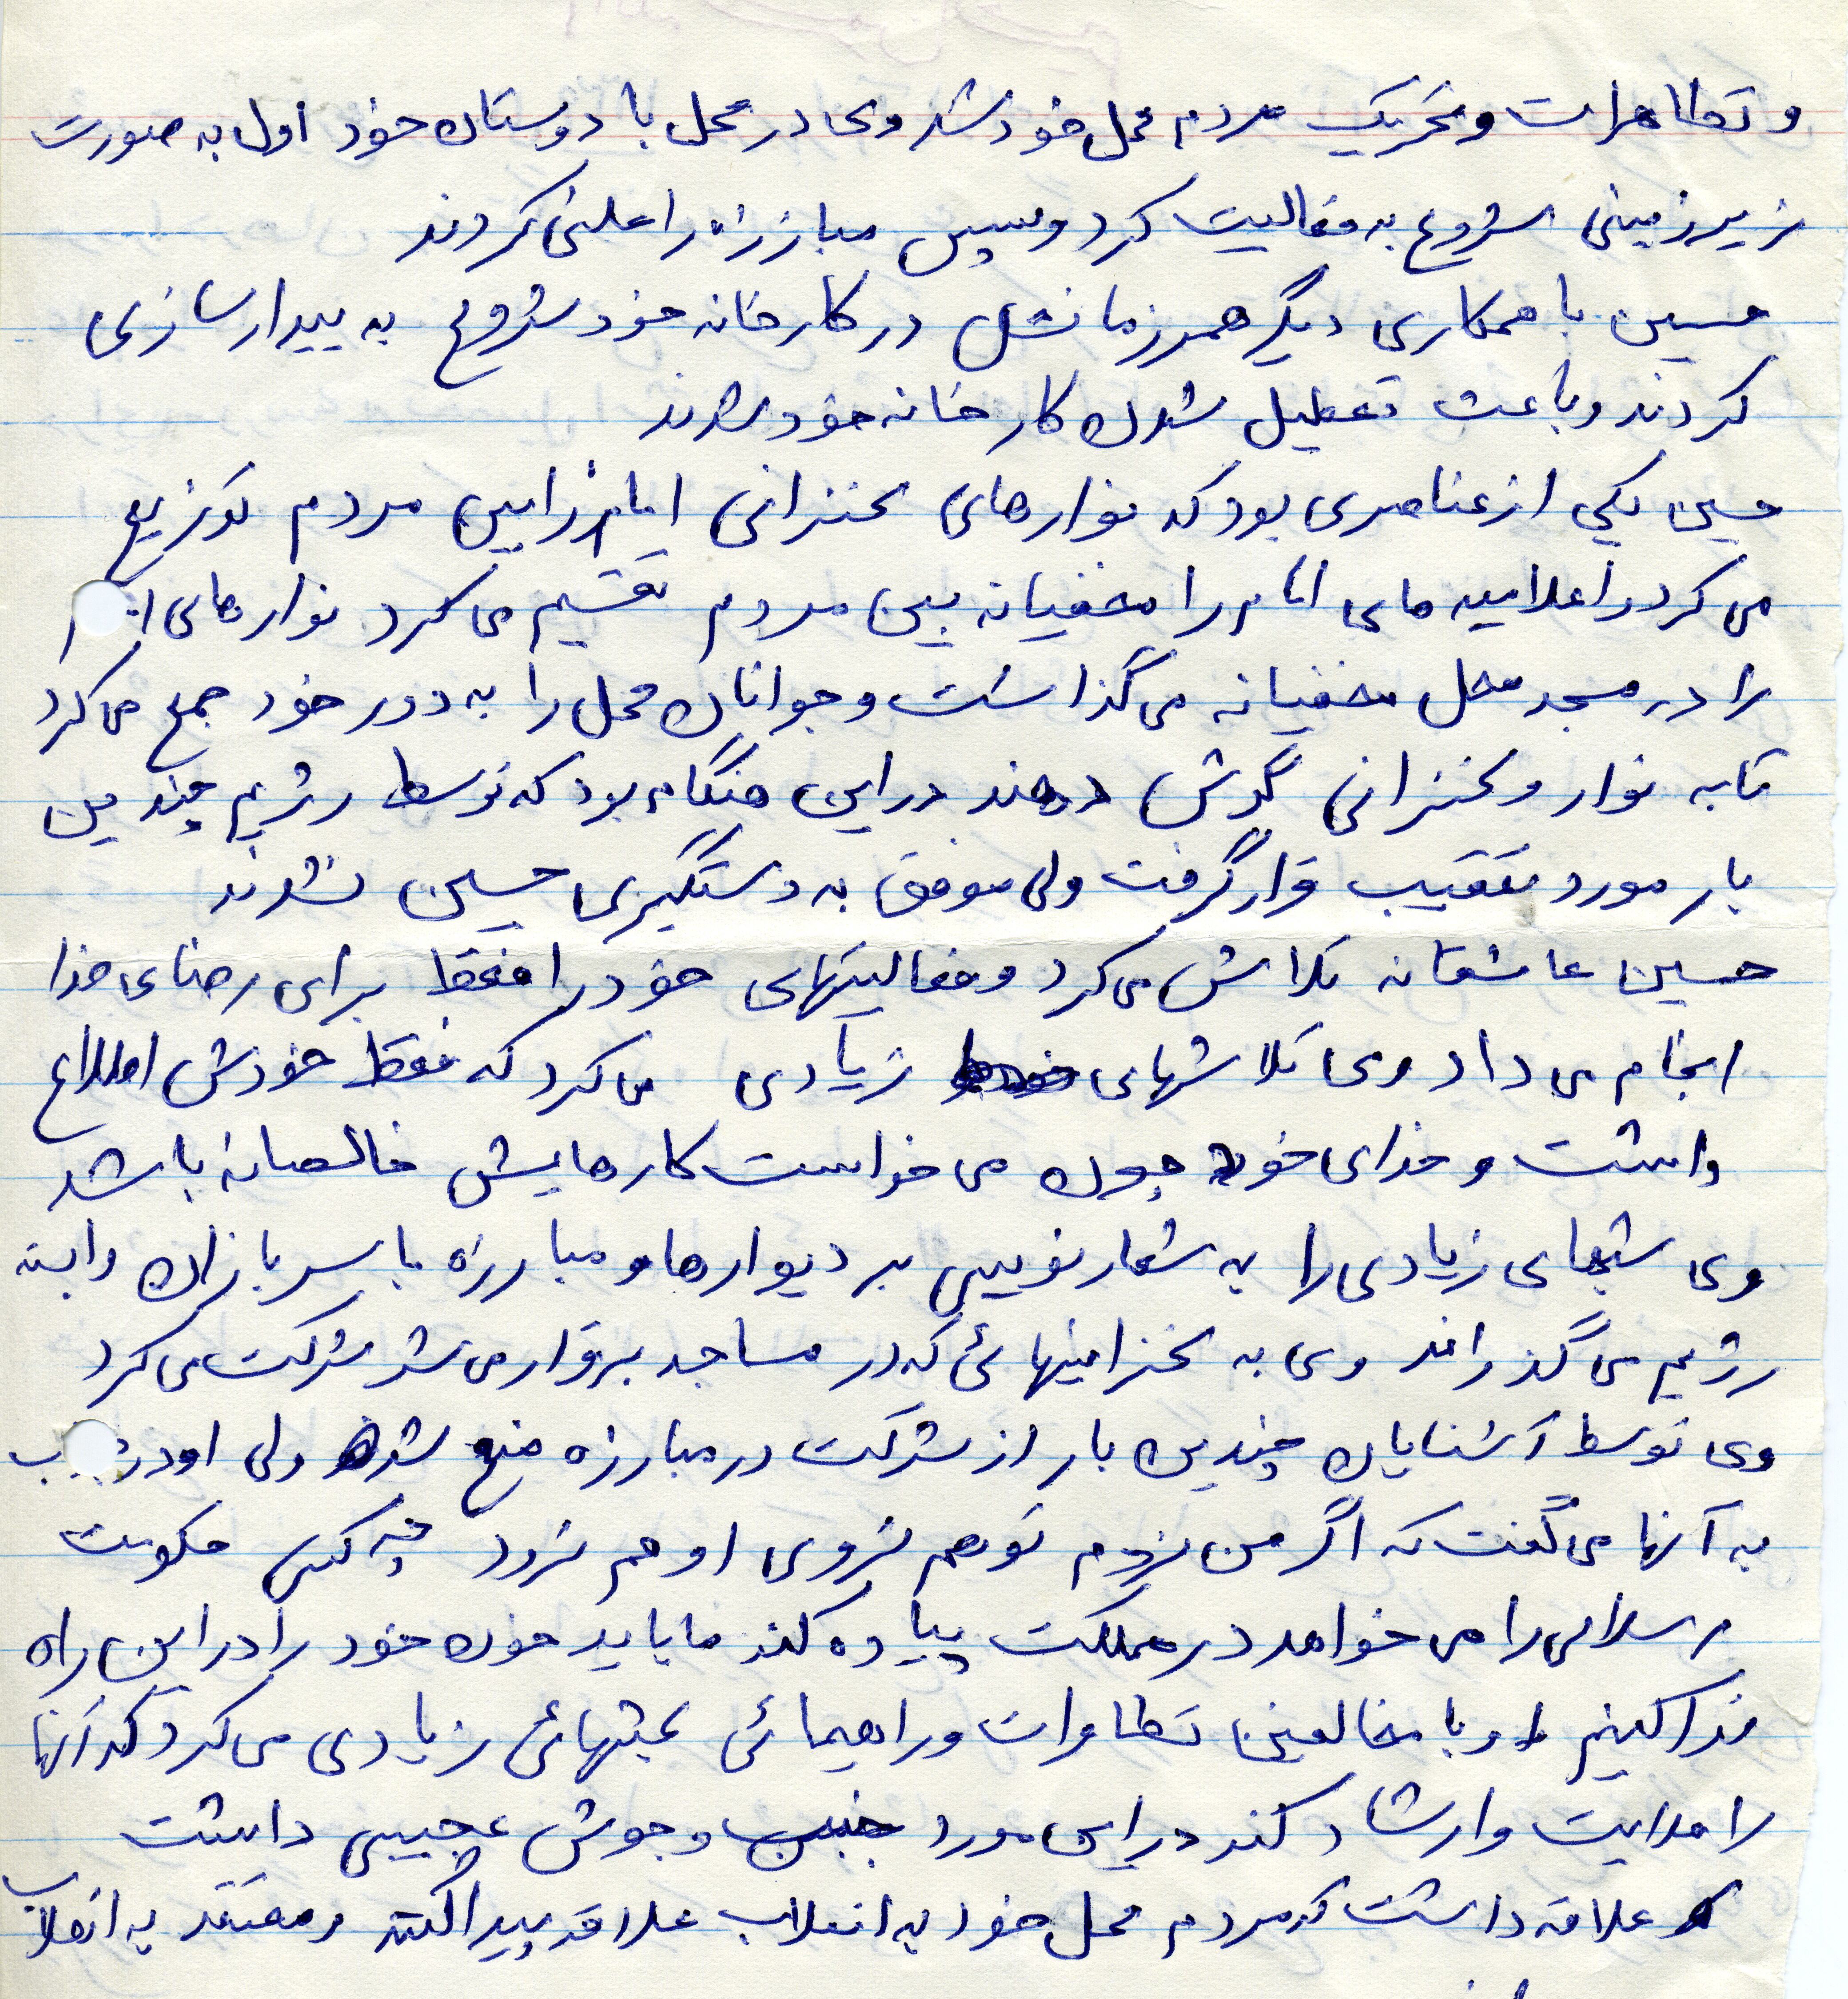 و تظاهرات و تحریک مردم محل خود شد وی در محل با دوستان خود اول به صورت
زیرزمینی شروع به فعالیت کرد و سپس مبارزه را علنی کردند
حسین با همکاری دیگر همرزمانش در کارخانه خود شروع به بیدارسازی
کردند و باعث تعطیل شدن کارخانه خود شدند
حسین یکی از عناصری بود که نوارهای سخنرانی امام را بین مردم توزیع
می کرد و اعلامیه های امام را مخفیانه بین مردم تقسیم می کرد نوارهای امام
را در مسجد محل مخفیانه می گذاشت و جوانان محل را به دور خود جمع می کرد
تا به نوار و سخنرانی گوش دهند در این هنگام بود که توسط رژیم چندین
بار مورد تعقیب قرار گرفت ولی موفق به دستگیری حسین نشدند
حسین عاشقانه تلاش می کرد و فعالیتهای خود را فقط برای رضای خدا
انجام می داد وی تلاشهای زیادی می کرد که فقط خودش اطلاع
داشت و خدای خود چون می خواست کارهایش خالصانه باشد
وی شبهای زیادی را به شعارنویسی بر دیوارها و مبارزه با سربازان وابسته
رژیم می گذراند وی به سخنرانیهائی که در مساجد برقرار می شد شرکت می کرد
وی توسط آشنایان چندین بار از شرکت در مبارزه منع شد ولی او در جواب
به آنها می گفت که اگر من نروم تو هم نروی او هم نرود چه کسی حکومت
اسلامی را می خواهد در مملکت پیاده کند ما باید خون خود را در این راه
فدا کنیم او با مخالفین تظاهرات و راهپیمائی بحثهائی زیادی می کرد که آنها
را هدایت و ارشاد کند در این مورد جنب و جوش عجیبی داشت
علاقه داشت که مردم محل خود به انقلاب علاقه پیدا کنند و معتقد به انقلاب